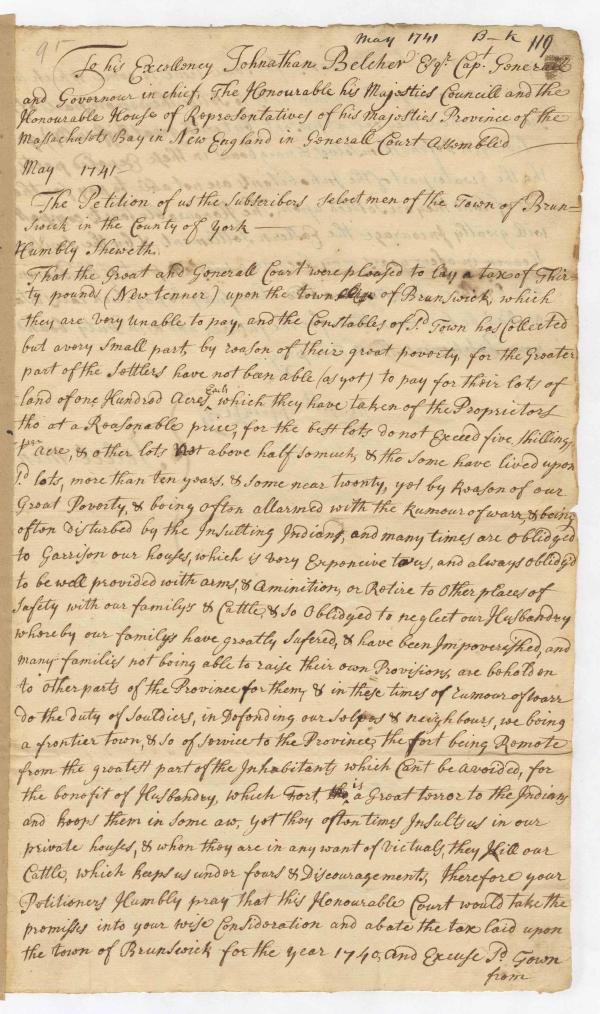 May 1741 B-k 119
95
To his Excellency Johnathan Belcher Esqr. Capt. Generall
and Governour in chief, The Honourable his Majesties Councill and the
Honourable House of Representatives of his majesties Province of the
Massachusets Bay in New England in Generall Court Assembled
May 1741
The Petition of us the Subscribers select men of the Town of Brun-
swick in the County of York
Humbly Sheweth.
That the Great and Generall Court were pleased to lay a tax of Thir-
ty pounds (New tenner) upon the town of Brunswick, which
they are very unable to pay, and the Constables of sd. Town has Collected
but a very small part, by reason of their great poverty, for the Greater
part of the Settlers have not been able (as yet) to pay for their lots of
land of one Hundred Acres Each, which they have taken of the Proprietors
tho at a Reasonable price, for the best lots do not Exceed five shillings
per acre, & other lots Not above half so much, & tho some have lived upon
sd. lots, more than ten years, & some near twenty, yet by Reason of our
Great Poverty, & being often allarmed with the Rumour of warr, & being
often disturbed by the Insulting Indians, and many times are Oblidged
to Garrison our houses, which is very Expencive to us, and always oblidg'd
to be well provided with arms, & Aminition, or Retire to Other places of
Safety with our familys & Cattle, & so Oblidged to neglect our Husbandry
whereby our familys have greatly sufered, & have been Impoverished, and
many families not being able to raise their own Provisions, are beholden
to other parts of the Province for them, & in these times of rumour of warr
do the duty of Souldiers, in Defending our selves & neighbours, we being
a frontier town, & so of service to the Province, the fort being Remote
from the greatest part of the Inhabitants which Cant be avoided, for
the benefit of Husbandry, which Fort, is a Great terror to the Indians
and keeps them in some aw, yet they oftentimes Insults us in our
private houses, & when they are in any want of victuals, they Kill our
Cattle, which keeps us under fears & Discouragements, therefore your
Petitioners Humbly pray that this Honourable Court would take the
premisses into your wise Consideration and abate the tax laid upon
the town of Brunswick for the year 1740, and Excuse sd. Town
from